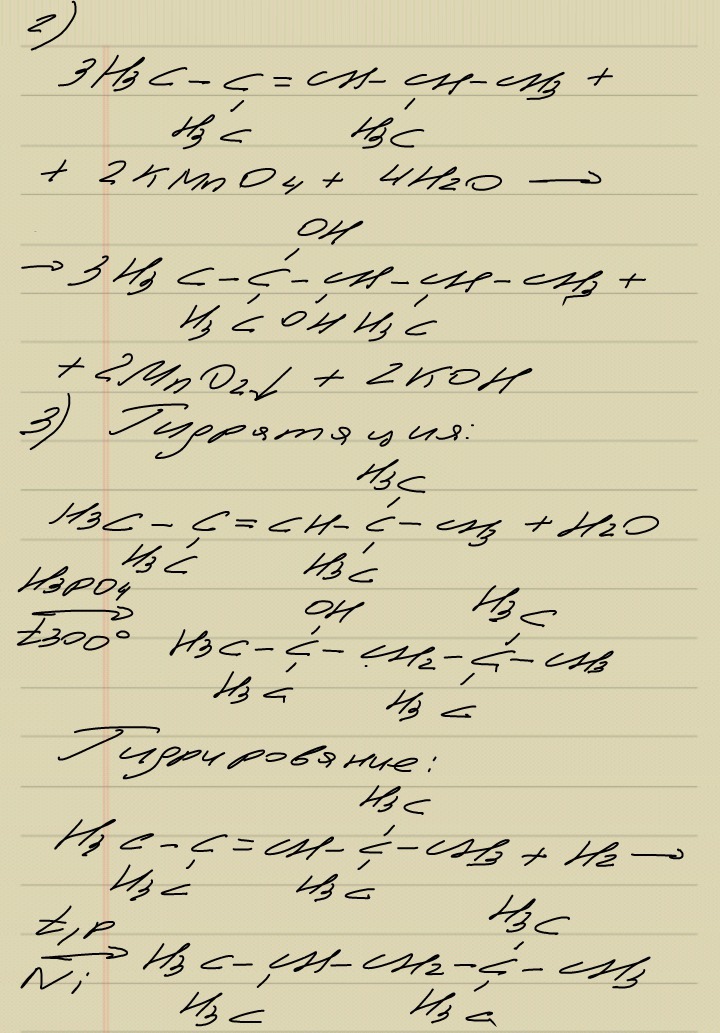 2)
3H3C - C = CH - CH - CH3 +
H3C H3C
+ 2KMnO4 + 4H2O →
OH
→ 3H3C - C - CH - CH - CH3 +
H3C OH H3C
+ 2MnO2↓ + 2KOH
3) Гидратация:
H3C
H3C - C = CH - C - CH3 + H2O
H3C H3C
H3PO4
→
t300°
OH H3C
H3C - C - CH2 - C - CH3
H3C H3C
Гидрирование:
H3C
H3C - C = CH - C - CH3 + H2 →
H3C H3C
t,p H3C
→ H3C - CH - CH2 - C - CH3
Ni H3C H3C